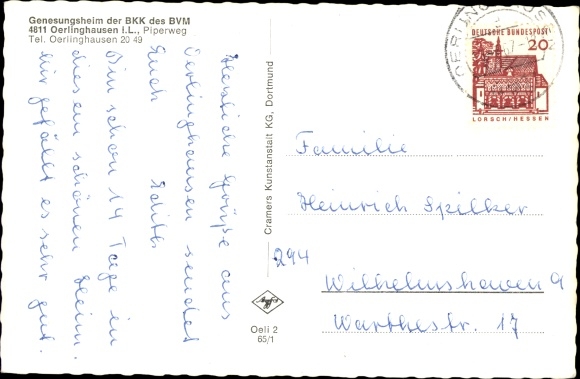 Genesungsheim der BKK des BVM
4811 Oerlinghausen i.L., Piperweg
Tel. Oerlinghausen 20 49
Herzliche Grüße aus
Oerlinghausen sendet
Euch Edith
Bin schon 14 Tage in
diesem schönen Heim.
mir gefällt es sehr gut.
Cramers Kunstanstalt KG, Dortmund
Oeli 2
65/1
DEUTSCHE BUNDESPOST
20
LORSCH/HESSEN
Familie
Heinrich Spilker
294 Wilhelmshaven
Warthestr. 17